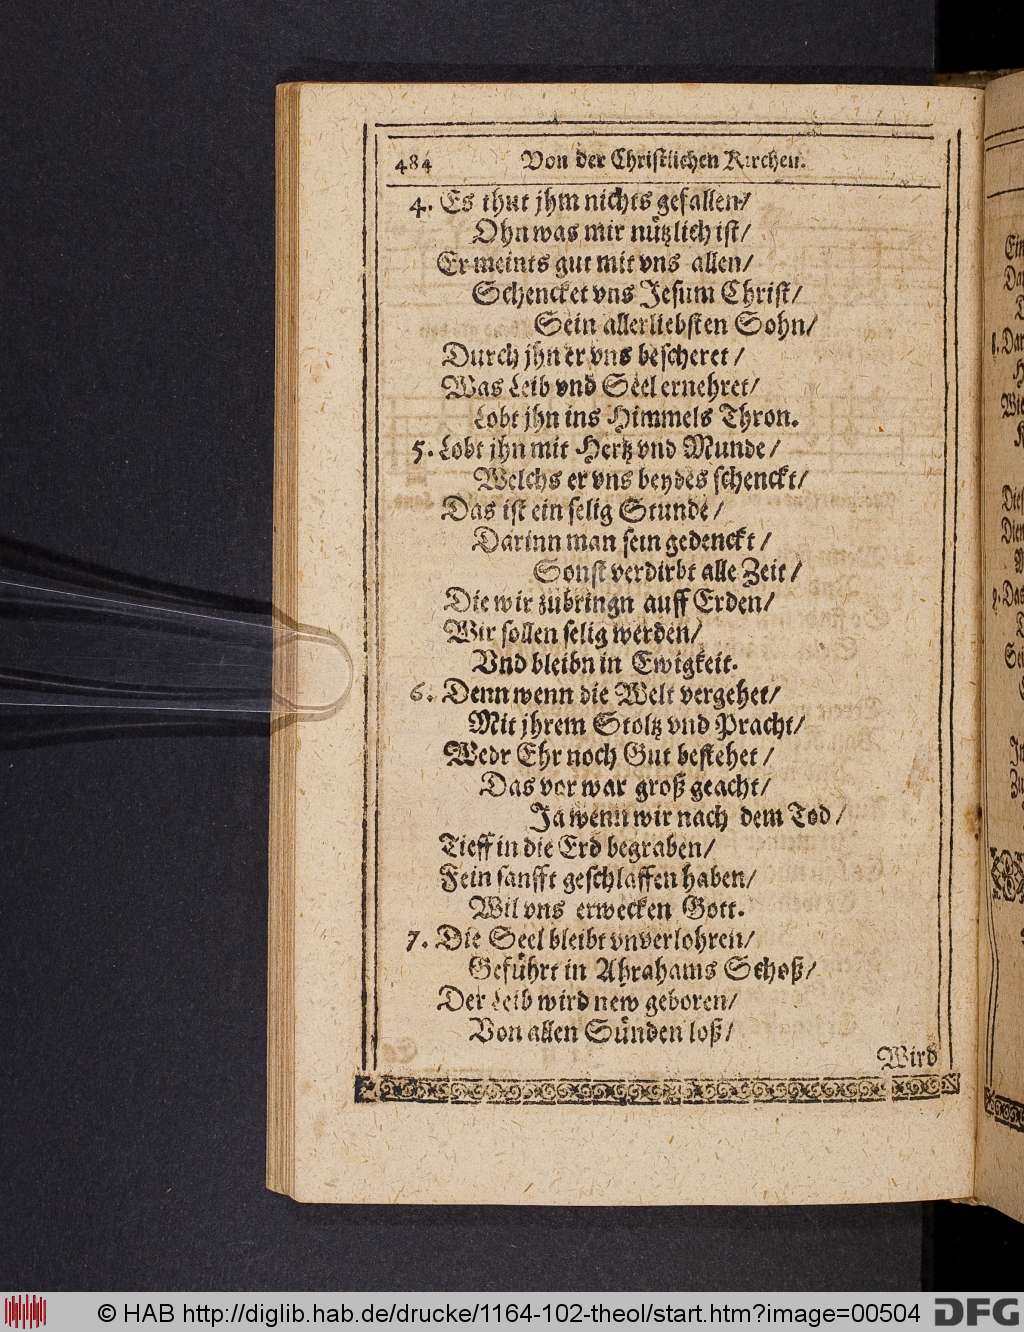 484 Von der Christlichen Kirchen.
4. Es thut jhm nichts gefallen/
Ohn was mir nützlich ist/
Er meints gut mit vns allen/
Schencket vns Jesum Christ/
Sein allerliebsten Sohn/
Durch jhn er vns bescheret/
Was Leib vnd Seel ernehret/
Lobt jhn ins Himmels Thron.
5. Lobt jhn mit Hertz vnd Munde/
Welchs er vns beydes schenckt/
Das ist ein selig Stunde/
Darinn man sein gedenckt/
Sonst verdirbt alle Zeit/
Die wir zubringn auff Erden/
Wir sollen selig werden/
Vnd bleibn in Ewigkeit.
6. Denn wenn die Welt vergehet/
Mit jhrem Stoltz vnd Pracht/
Wedr Ehr noch Gut bestehet/
Das vor war groß geacht/
Ja wenn wir nach dem Tod/
Tieff in die Erd begraben/
Fein sanfft geschlaffen haben/
Wil vns erwecken Gott.
7. Die Seel bleibt vnverlohren/
Geführt in Abrahams Schoß/
Der Leib wird new geboren/
Von allen Sünden loß/
Wird
© HAB http://diglib.hab.de/drucke/1164-102-theol/start.htm?image=00504
DFG